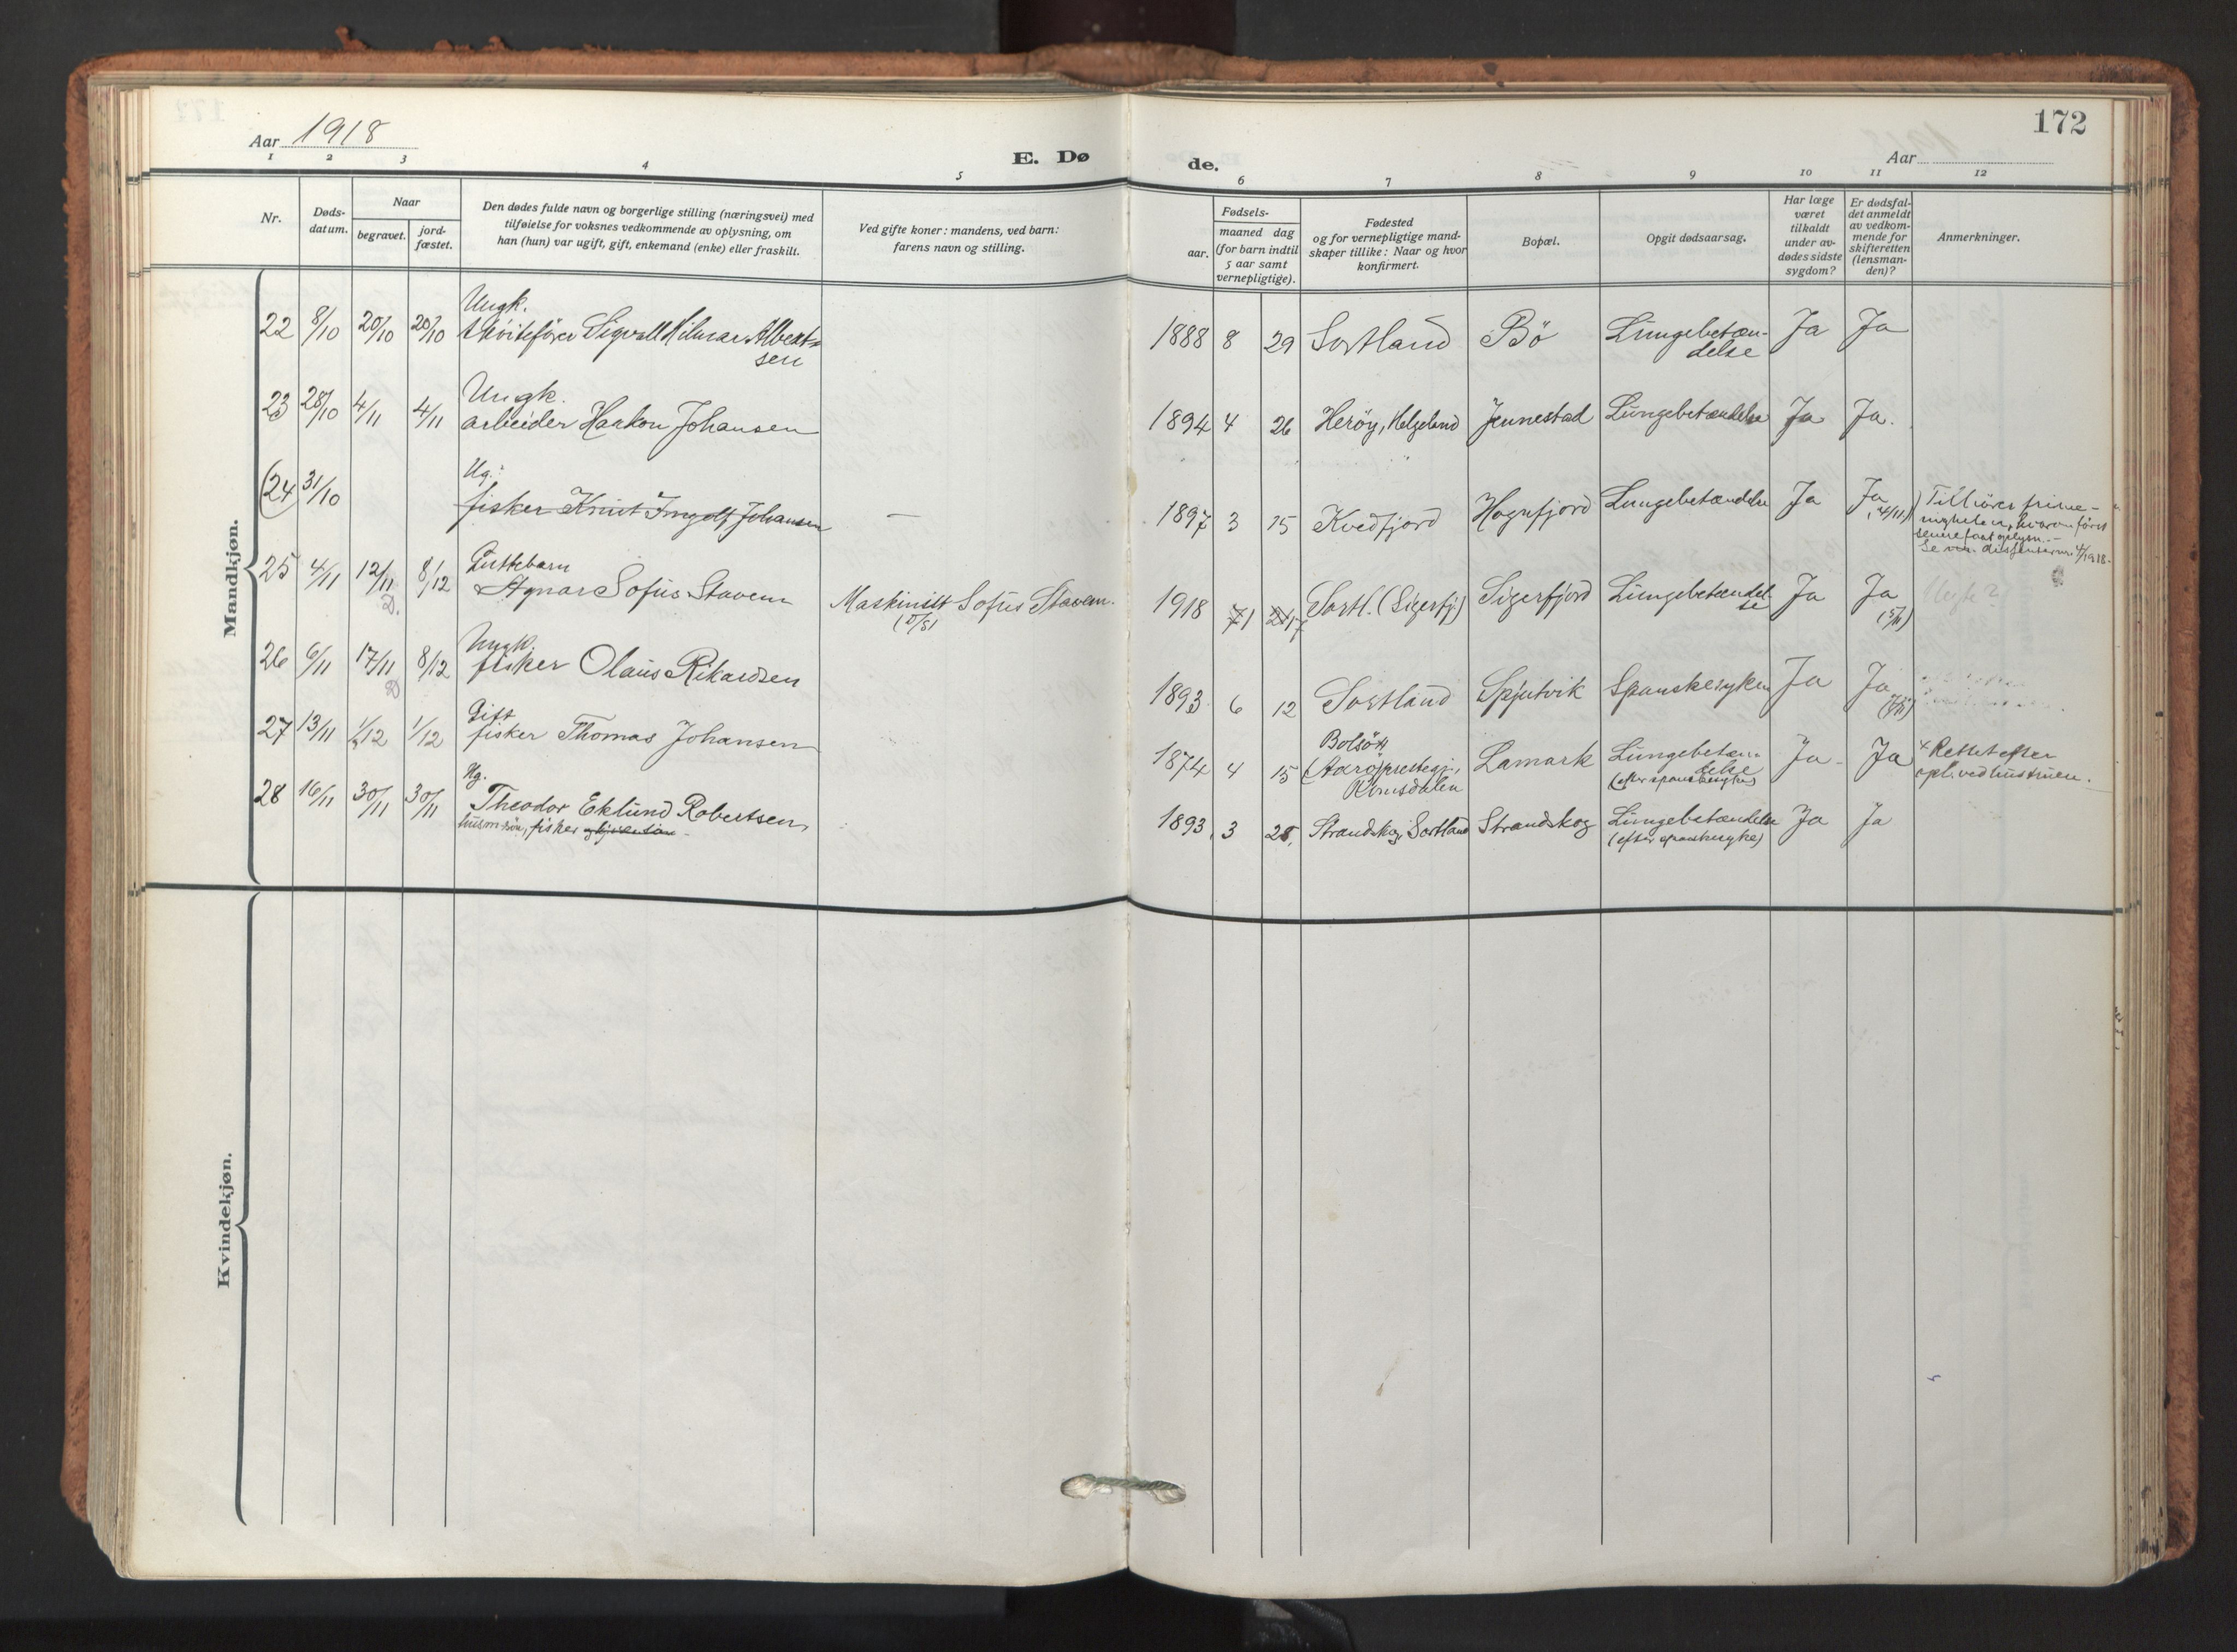 172
Aar 1918
E. Dø
de.
Aar
1 2 3 4 5 6 7 8 9 10 11 12
Nr.
Døds-
datum.
Naar
begravet.
jord-
fæstet.
Den dødes fulde navn og borgerlige stilling (næringsvei) med
tilføielse for voksnes vedkommende av oplysning, om
han (hun) var ugift, gift, enkemand (enke) eller fraskilt.
Ved gifte koner: mandens, ved barn:
farens navn og stilling.
Fødsels-
aar.
maaned dag
(for barn indtil
5 aar samt
vernepligtige).
Fødested
og for vernepligtige mand-
skaper tillike: Naar og hvor
konfirmert.
Bopæl.
Opgit dødsaarsag.
Har læge
været
tilkaldt
under av-
dødes sidste
sygdom?
Er dødsfal-
det anmeldt
av vedkom-
mende for
skifteretten
(lensman-
den)?
Anmerkninger.
Mandkjøn.
Ungk.
22 8/10 20/10 20/10 skøitefører Sigvald Hilmar Albert- 1888 8 29 Sortland Bö Lungebetæn- Ja Ja
sen delse
Ungk.
23 28/10 4/11 4/11 arbeider Haakon Johansen 1894 4 26 Heröy, Helgeland Jennestad Lungebetændelse Ja Ja.
Ug.
(24 31/10 fisker Knut Ingolf Johansen — 1897 3 15 Kvedfjord Hognfjord Lungebetændelse Ja Ja (4/11)
Tilhörer frime-
nigheten, hvorom först
senere faat oplysn.-
Se dissenternr. 4/1918.
Guttebarn
25 4/11 12/11 8/12 Agnar Sofus Stavem Maskinist Sofus Stavem. 1918 7 1 Sortl. (Sigerfj.) Sigerfjord Lungebetændel- Ja Ja
D. se (5/11)
Ungk.
26 6/11 17/11 8/12 fisker Olaus Rikardsen 1893 6 12 Sortland Spjutvik Spanskesyken Ja Ja
D
Gift
27 13/11 1/12 1/12 fisker Thomas Johansen 1874 4 15 Bolsöx Lamark Lungebetæn- Ja - Ja x Rettet efter
(Aarö) prestegj., delse opl. ved hustruen.
Romsdalen (efter spanskesyke)
Ug.
28 16/11 30/11 30/11 Theodor Eklund Robertsen, 1893, 3 28, Strandskog, Sortland Strandskog Lungebetændelse Ja Ja
husm.sön, fisker (efter spanskesyke)
Kvindekjøn.